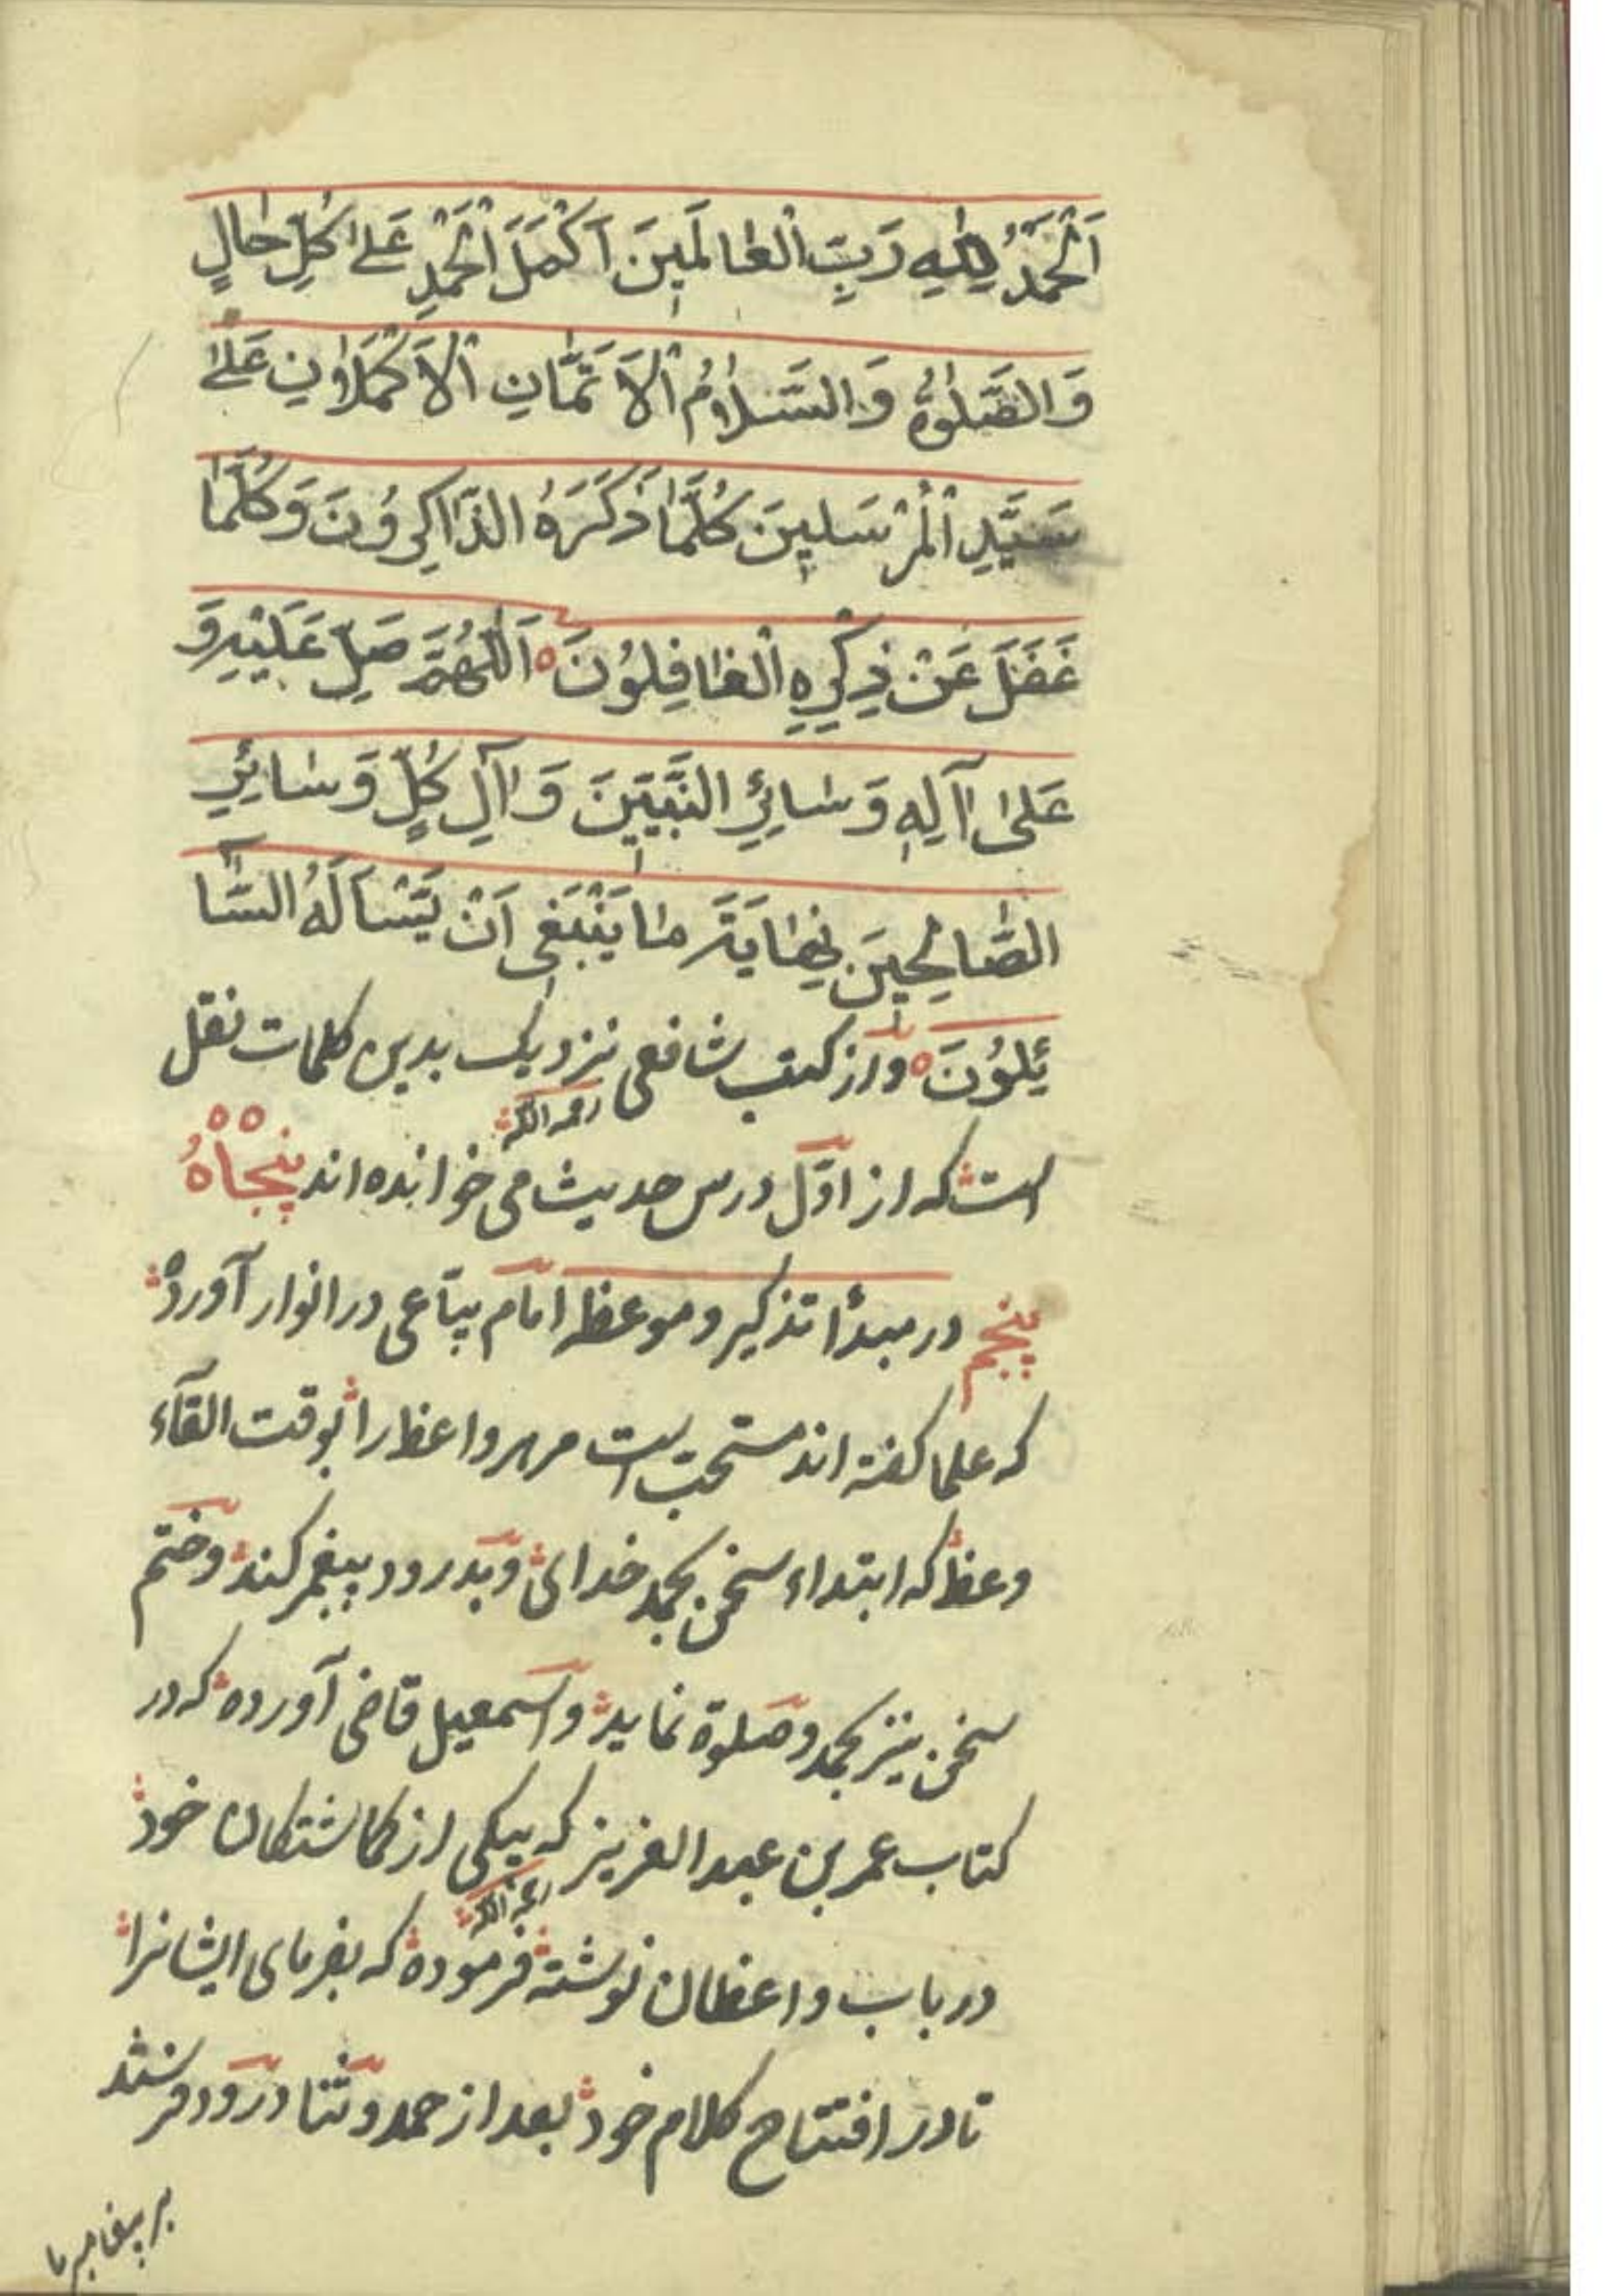 اَلْحَمْدُ لِلّٰهِ رَبِّ الْعٰالَمٖينَ اَكْمَلَ الْحَمْدِ عَلىٰ كُلِّ حٰالٍ
وَالصَّلٰوةُ وَالسَّلٰامُ الْاَتَمّٰانِ الْاَكْمَلٰانِ عَلىٰ
سَيِّدِ الْمُرْسَلٖينَ كُلَّمٰا ذَكَرَهُ الذّٰاكِرُونَ وَكُلَّمٰا
غَفَلَ عَنْ ذِكْرِهِ الْغٰافِلُونَ ۝ اَللّٰهُمَّ صَلِّ عَلَيْهِ وَ
عَلىٰ اٰلِهٖ وَسٰائِرِ النَّبِيّٖنَ وَاٰلِ كُلٍّ وَسٰائِرِ
الصّٰالِحٖينَ نِهٰايَةَ مٰا يَنْبَغٖى اَنْ يَسْاَلَهُ السّٰا
ئِلُونَ ۝ واز كتب شافعى نزديك بدين كلمات نقل
رحمه الله
است كه از اوّل درس حديث مى خوانده اند پنجاهُ
پنجم در مبدأ تذكير و موعظه امام يباعى در انوار آورده
كه علما كفته اند مستحب است مر هر واعظ را بوقت القآء
وعظ كه ابتداء سخن بحمد خداى و بدرود پيغمبر كند و ختم
سخن نيز بحمد و صلوة نمايد و اسمعيل قاضى آورده كه در
كتاب عمر بن عبد العزيز كه بيكى از كماشتكان خود
رحمه الله
در باب واعظان نوشته فرموده كه بفرماى ايشانرا
تا در افتتاح كلام خود بعد از حمد و ثنا درود فرستند
بر پيغامبر ما